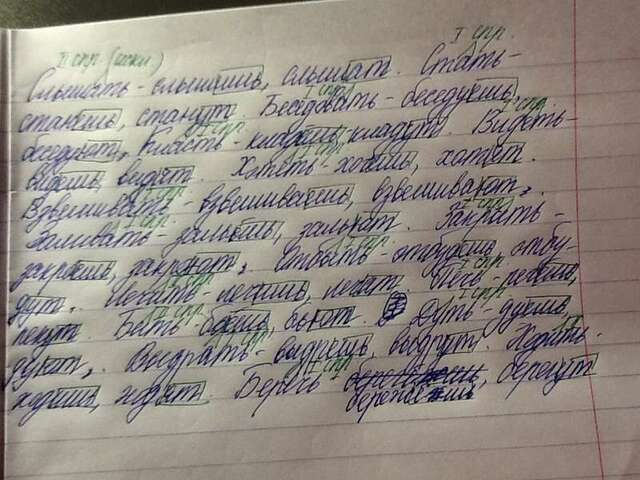 II спр. (искл.) I спр.
Слышать - слышишь, слышат. Стать -
станешь, станут. Беседовать - беседуешь,
беседуют, Класть - кладешь, кладут. Видеть -
видишь, видят. Хотеть - хочешь, хотят.
Взвешивать - взвешиваешь, взвешивают,
Заливать - зальешь, зальют. Закрыть -
закроешь, закроют, Отбыть - отбудешь, отбу-
дут. Печь - печешь,
пекут. Бить - бьешь, бьют. Дуть - дуешь,
дуют, Выдрать - видришь, выдрут. Ходить -
ходишь, ходят. Беречь - , берегут